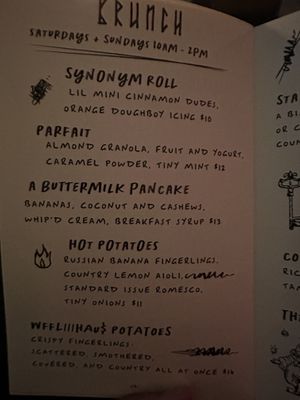 BRUNCH
SATURDAYS + SUNDAYS 10AM - 2PM
SYNONYM ROLL
LIL MINI CINNAMON DUDES,
ORANGE DOUGHBOY ICING $10
PARFAIT
ALMOND GRANOLA, FRUIT AND YOGURT,
CARAMEL POWDER, TINY MINT $12
A BUTTERMILK PANCAKE
BANANAS, COCONUT AND CASHEWS,
WHIP'D CREAM, BREAKFAST SYRUP $13
HOT POTATOES
RUSSIAN BANANA FINGERLINGS,
COUNTRY LEMON AIOLI,
STANDARD ISSUE ROMESCO,
TINY ONIONS $11
POTATOES
CRISPY FINGERLINGS
SCATTERED, SMOTHERED,
COVERED, AND COUNTRY ALL AT ONCE
STA
A BI
OR C
COUN
CO
RIC
TAN
TH